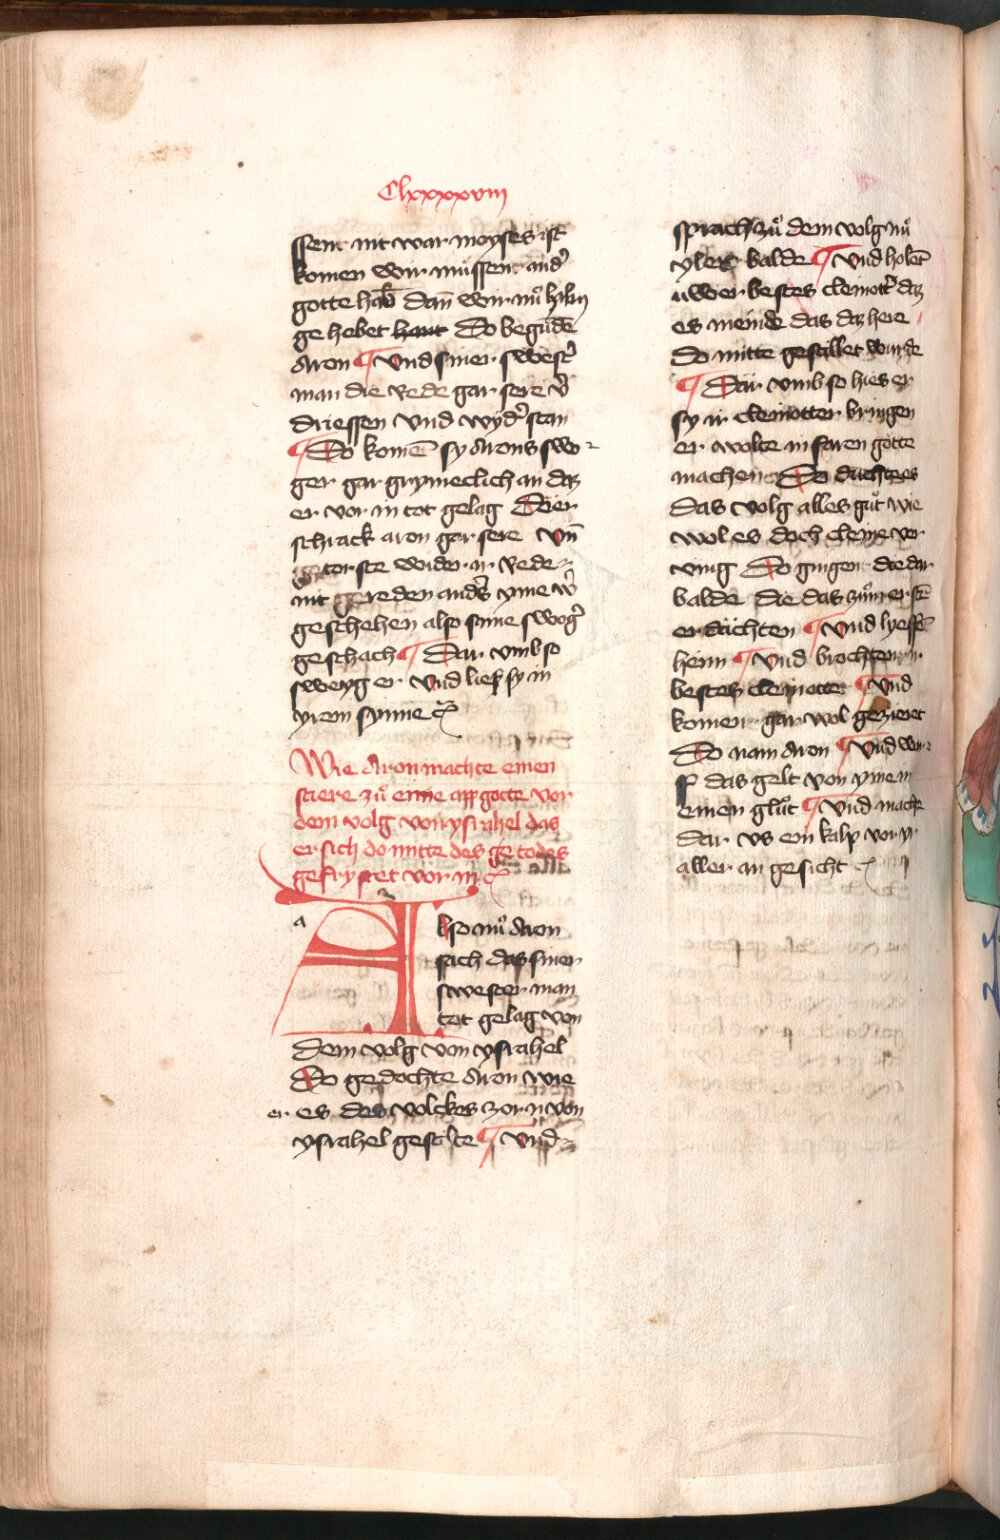 Clxxxxviii
ssent nit war moyses ist
komen wir mussent andˀ
gotte hab dan̄ wir nuͦ
ge hebet hant Do begunde
Aron ¶ Vnd siner swestˀ
man die rede gar sere vˀ
driessen vnd wydˀ stan
¶ Do komē sy Arons swo
ger gar grymeclich an daz
er vor in tot gelag Do er
schrack aron gar sere vn̄
torste wider ir rede
nit gereden andˀs yme wˀ
geschehen also sime swogˀ
geschach ¶ Dar vmb so
sweyg er vnd lies sy in
yrem synne
Wie Aron machte einen
stiere zuͦ eime appgotte vor
dem volg von ysrahel das
er sich do mitte des ge todes
gefrystet vor in
a
Also nuͦ Aron
sach das siner
swester man
tot gelag von
dem volg von ysrahel
Do gedochte Aron wie
er es des volckes zorn von
ysrahel gestilte ¶ Vnd
sprach zuͦ dem volg nuͦ
ylent balde ¶ Vnd holēt
uwer bestes cleinottˀ daz
es meinde das daz here
do mitte gestillet wurde
¶ Dar vmb so hies er
sy ir cleinotter bringen
er wolte in faren gotte
machen Do duchte es
das volg alles guͦt wie
wol es doch cleine ver
ving Do gingent die dar
balde die das zuͦm erstē
erdachten ¶ Vnd lyeffē
heim ¶ Vnd brochtent ir
bestes cleinotte ¶ Vnd
koment gar wol gezieret
Do nam Aron ¶ Vnd war
f das gelt von yme in
einen gluͦt ¶ Vnd macht
dar vs ein kalp vor yr
aller an gesicht